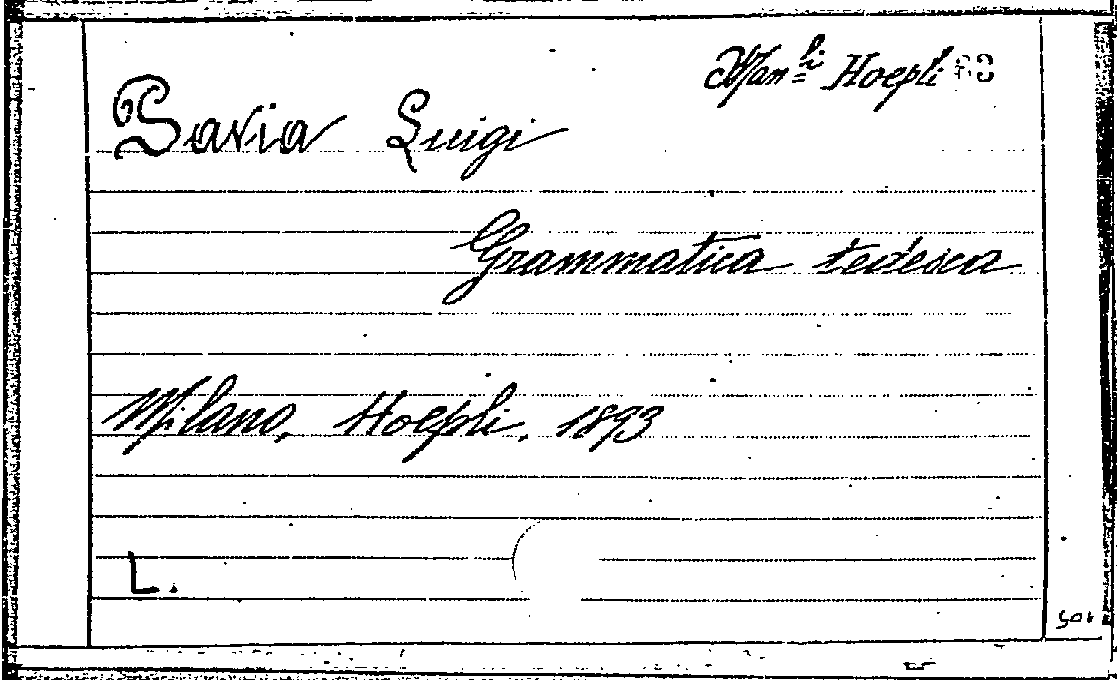 Man.li Hoepli
Pavia Luigi
Grammatica tedesca
Milano, Hoepli, 1893
L.